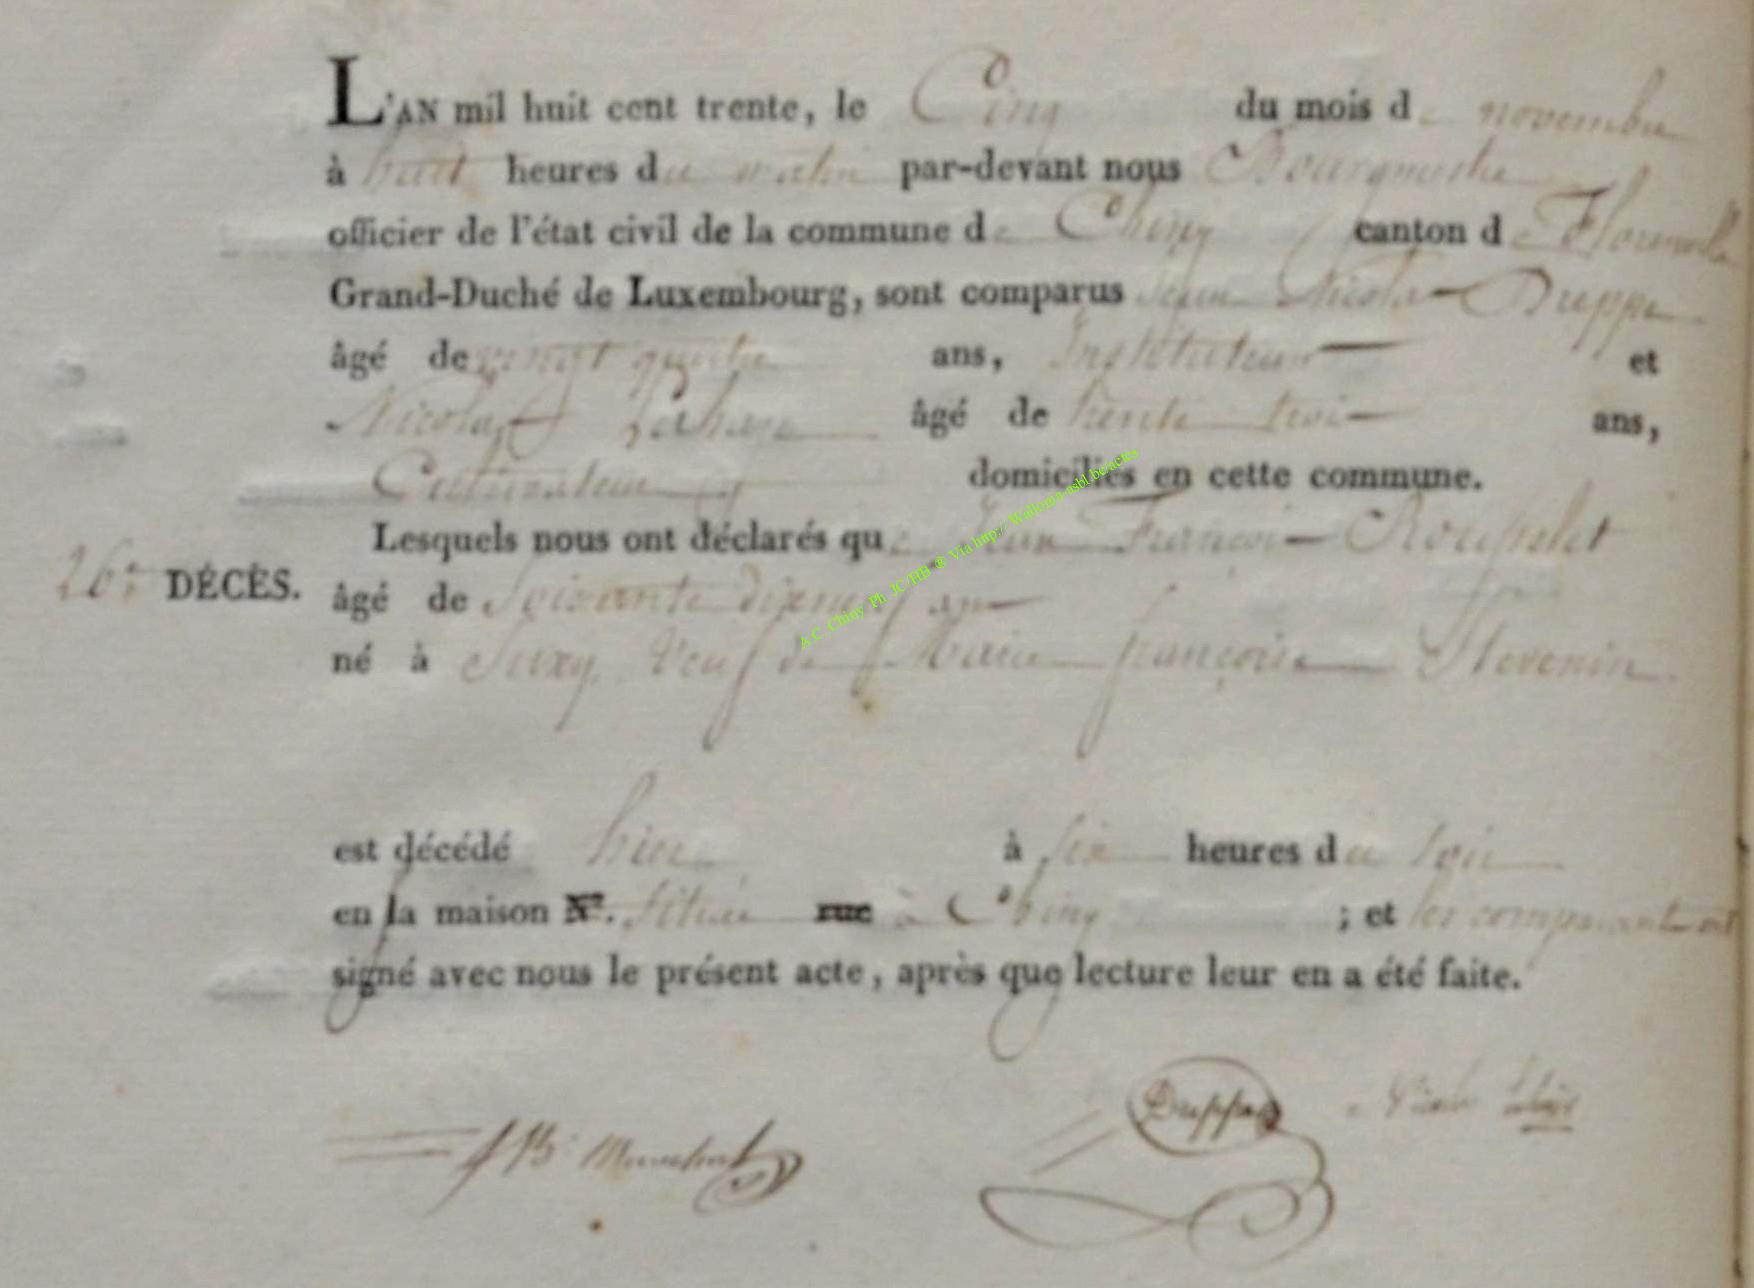 L'AN mil huit cent trente, le Cinq du mois de novembre
à huit heures du matin par-devant nous Bourgmestre
officier de l'état civil de la commune de Chiny canton de Florenville
Grand-Duché de Luxembourg, sont comparus Jean Nicolas Duppe
âgé de vingt quatre ans, Instituteur et
Nicolas Lahaye âgé de trente trois ans,
Cultivateur domiciliés en cette commune.
Lesquels nous ont déclarés que Jean François Roupelet
26e DÉCÈS. âgé de Soixante dixneuf ans
né à Suxy veuf de Marie françoise Stevenin
est décédé hier à six heures du soir
en la maison N°. située rue à Chiny ; et les comparants ont
signé avec nous le présent acte, après que lecture leur en a été faite.
Duppe
A.C. Chiny Ph. JC HB ® Via http://Wallonia-asbl.be/actes